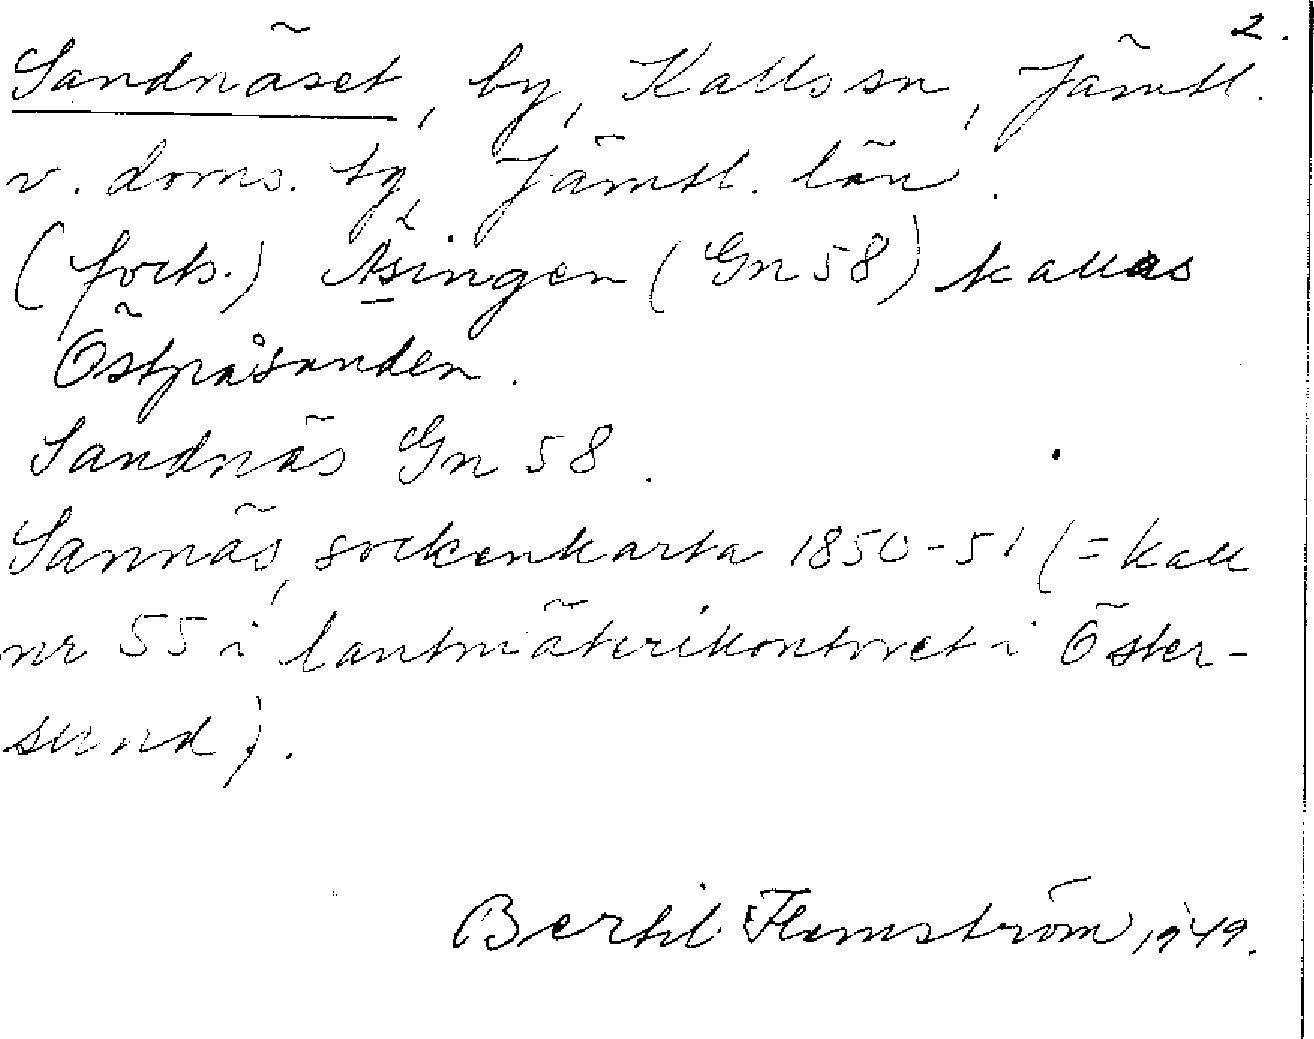 2.
Sandnäset, by, Kalls sn, Jämtl.
v. doms. tg, Jämtl. län.
(forts.) Åsingen (Gn 58) kallas
Östpåsanden.
Sandnäs Gn 58.
Sannäs, sockenkarta 1850-51 (= Kall
nr 55 i lantmäterikontoret i Öster-
sund).
Bertil Flemström 1949.